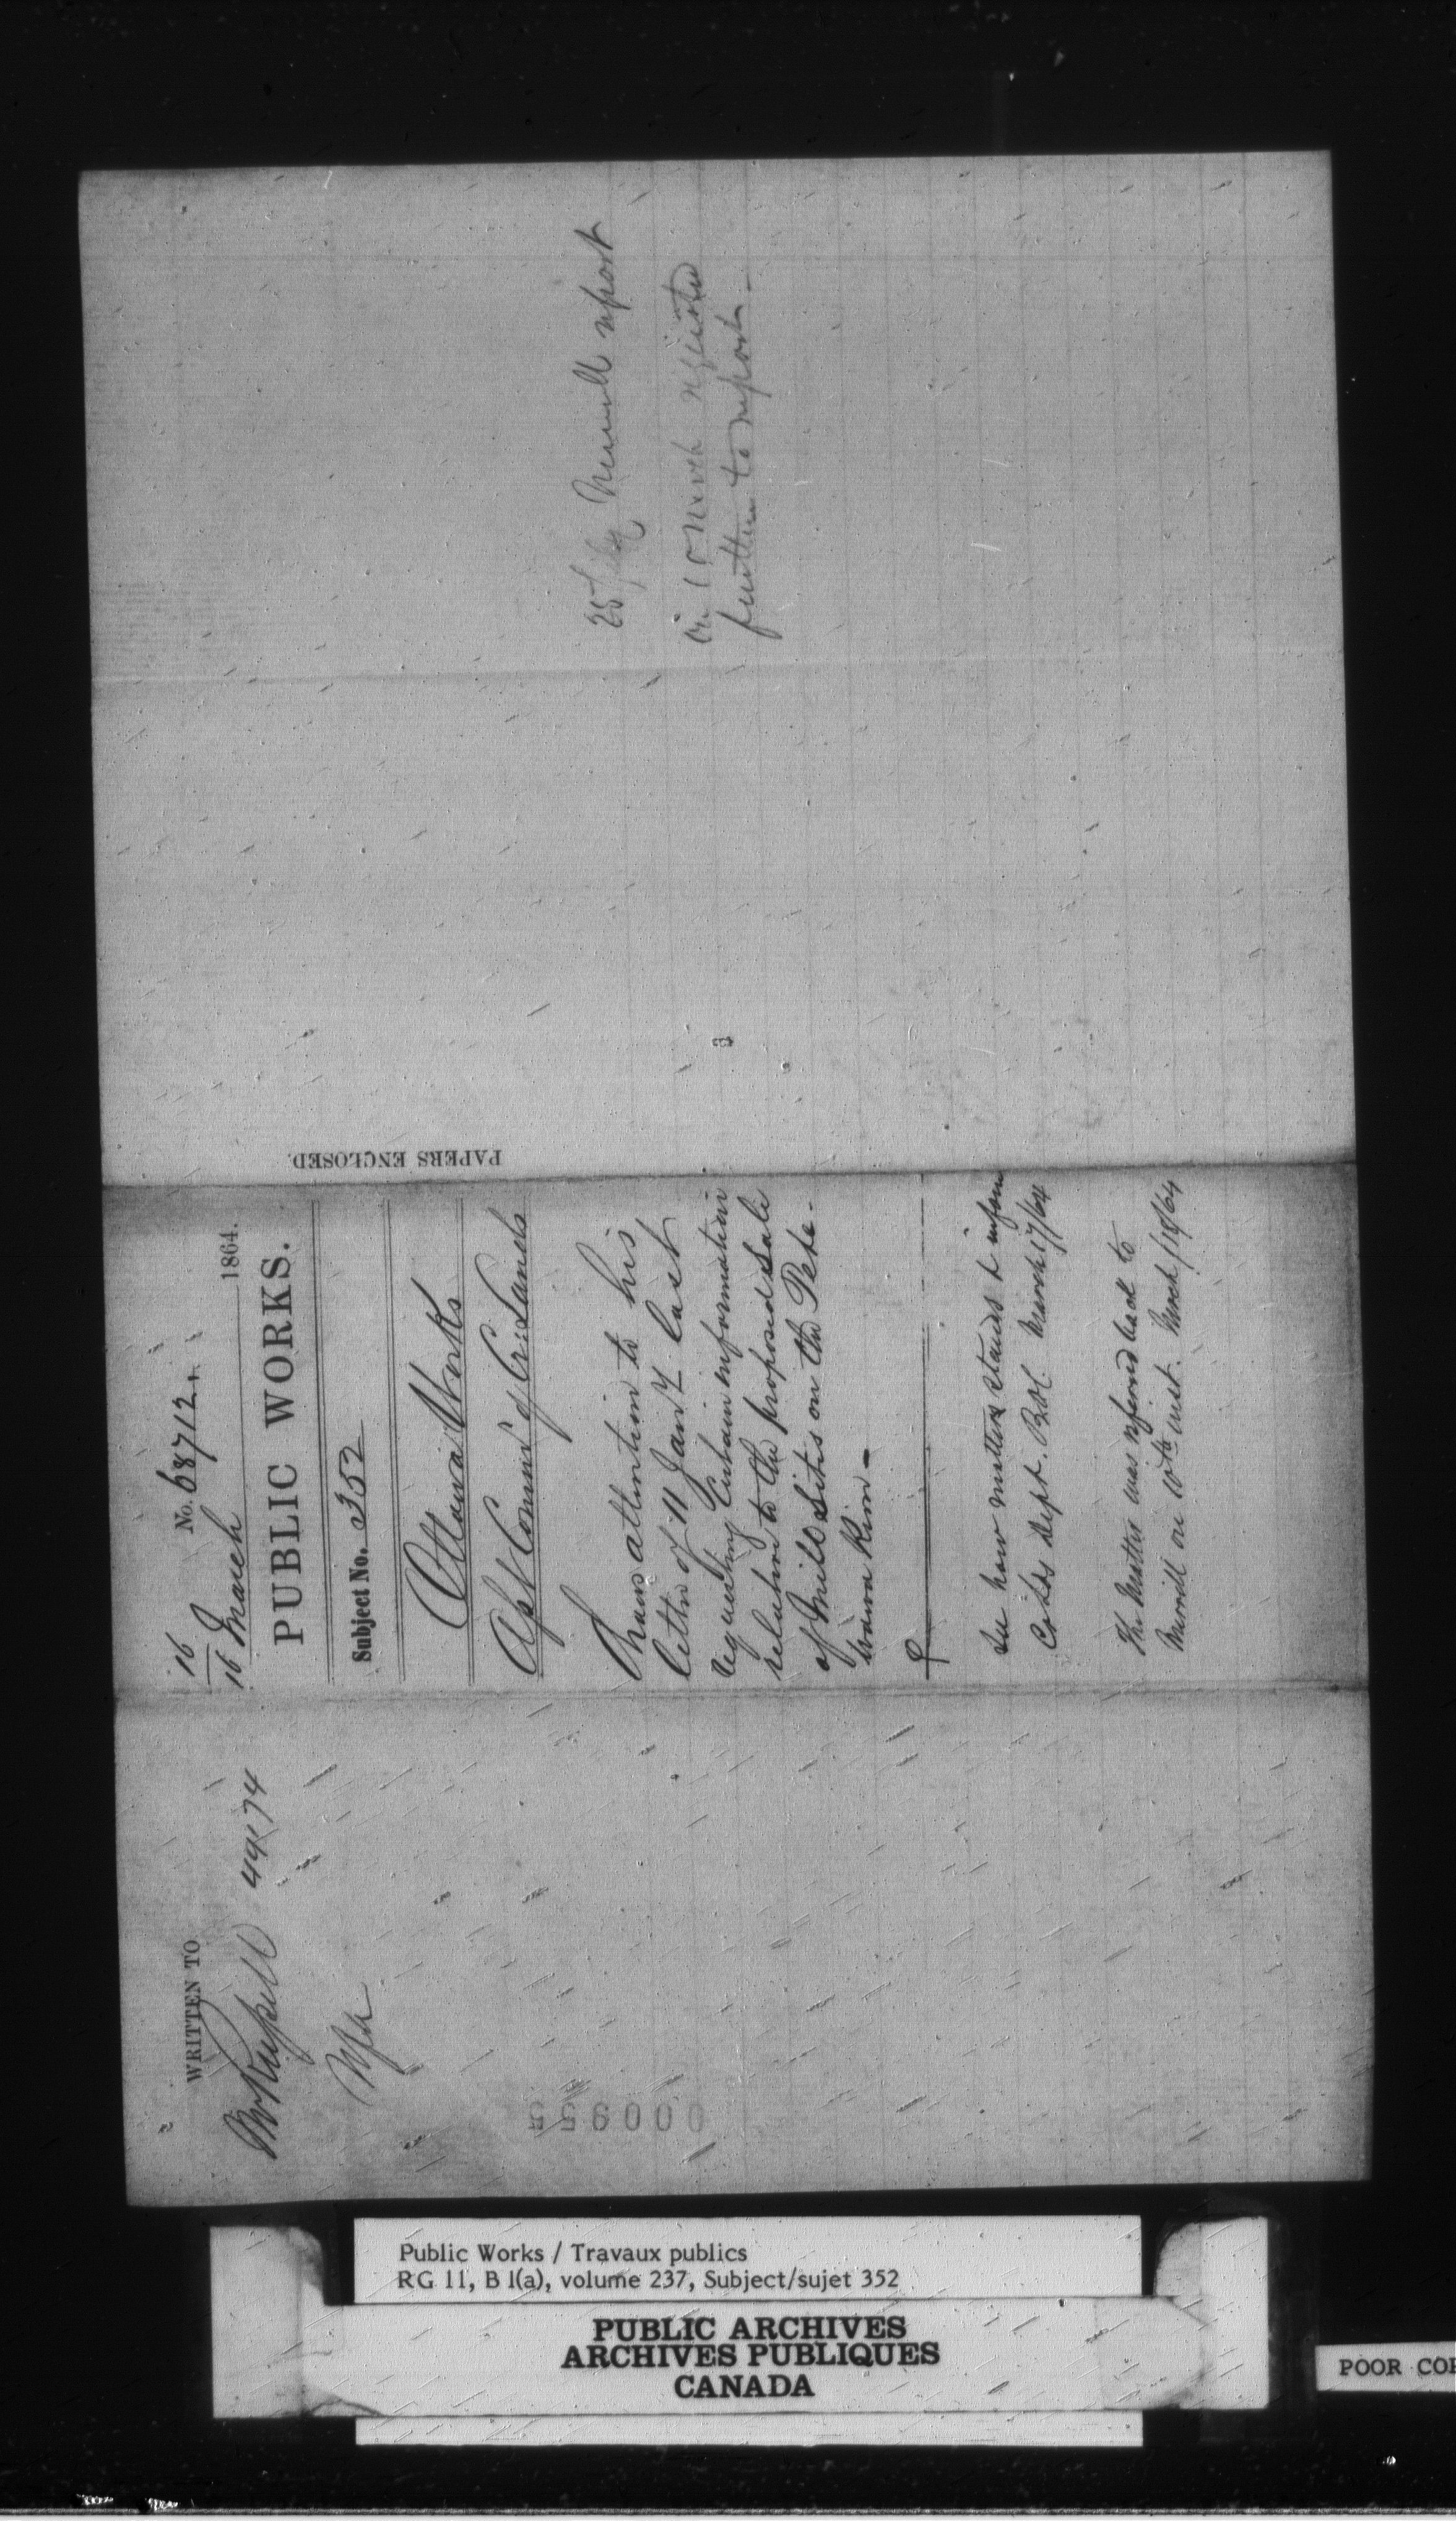 WRITTEN TO
Mr Russell 44174
16
16 March No. 68712. 1864.
PUBLIC WORKS.
Subject No. 352
Ottawa Works
Asst Commr of Cr: Lands
Draws attention to his
letter of 11 Jany last
requesting Certain information
relative to the proposed Sale
of Mill Sites on the Peta-
wawa River -
See how matter stands & inform
Cr Lds Dept. March 17/64
The Matter was referred back to
Merrill on 10th inst. March /18/64
PAPERS ENCLOSED
25 Feby Merrill report
on 10 March requested
further to report -
Public Works / Travaux publics
RG 11, B 1(a), volume 237, Subject/sujet 352
PUBLIC ARCHIVES
ARCHIVES PUBLIQUES
CANADA
POOR COP